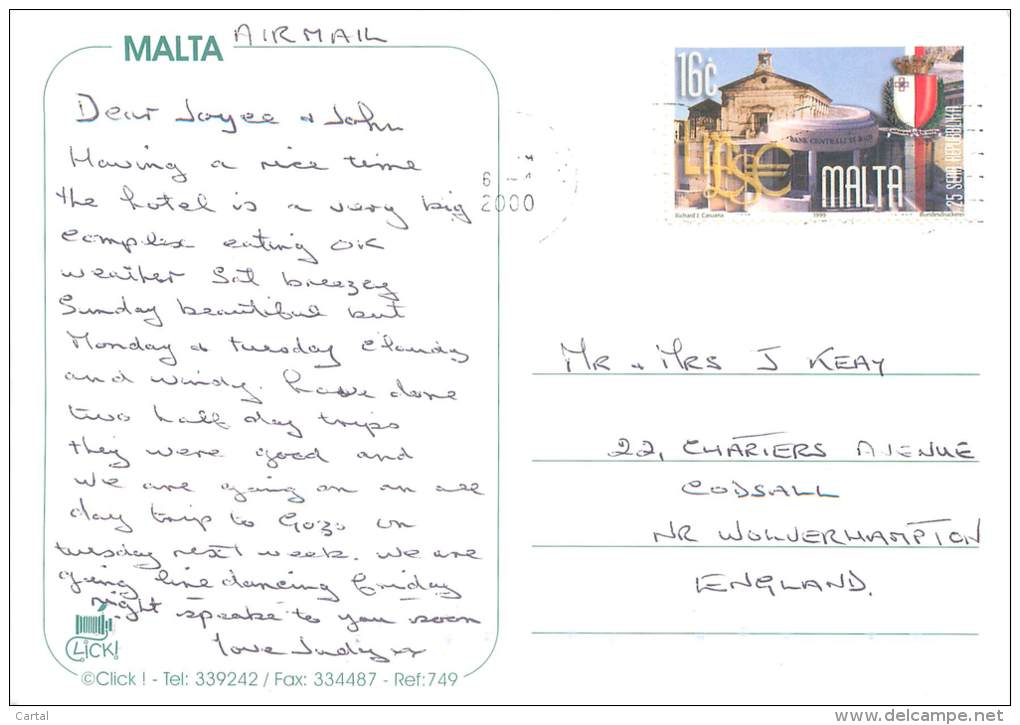 MALTA AIRMAIL
Dear Joyce & John
Having a nice time
the hotel is a very big
complex eating OK
weather Sat breezey
Sunday beautiful but
Monday & tuesday cloudy
and windy. have done
two half day trips
they were good and
we are going on an all
day trip to Gozo on
tuesday next week. we are
going line dancing friday
night speake to you soon
love Judy xx
CLICK!
©Click ! - Tel: 339242 / Fax: 334487 - Ref:749
6
2000
16c
BANK CENTRALI TA' MALTA
LIBSE
MALTA
25 SENA REPUBBLIKA
Richard J. Caruana 1999 Bundesdruckerei
MR & MRS J KEAY
22, CHARTERS AVENUE
CODSALL
NR WOLVERHAMPTON
ENGLAND.
Cartal
www.delcampe.net